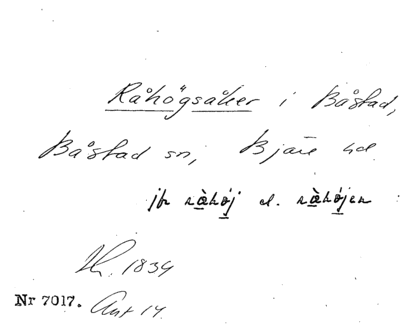 Råhögsåker i Båstad,
Båstad sn, Bjäre hd
jfr ràhǫj el. ràhǫjen
Lk. 1834
Nr 7017. Ant 14